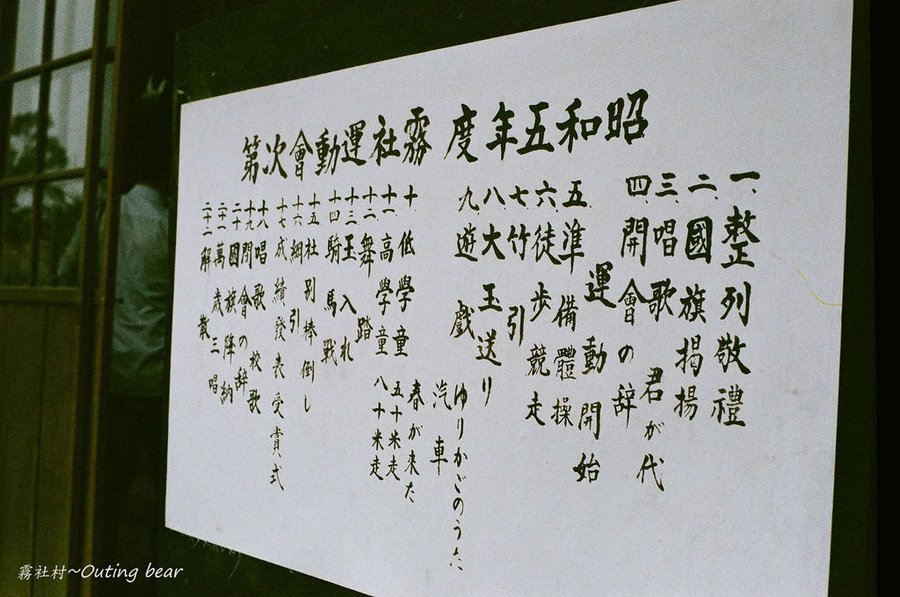 昭和五年度 霧社運動會次第
一、整列敬禮
二、國旗掲揚
三、唱歌 君が代
四、開會の辞
運動開始
五、準備體操
六、徒歩競走
七、竹引
八、大玉送り
九、遊戲 ゆりかごのうた
汽車
春が来た
十、低學童 五十米走
十一、高學童 八十米走
十二、舞踏
十三、玉入れ
十四 騎馬戰
十五 社別棒倒し
十六 綱引
十七 成績發表受賞式
十八 唱歌 校歌
十九 閉會の辞
二十 國旗降納
二十一 萬歳三唱
二十二 解散
霧社村~Outing bear